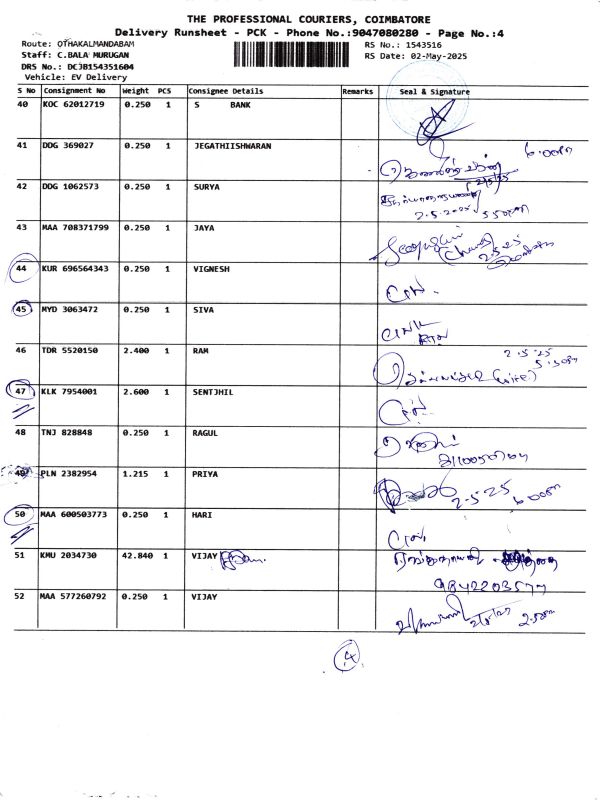 THE PROFESSIONAL COURIERS, COIMBATORE
Delivery Runsheet - PCK - Phone No.:9047080280 - Page No.:4
Route: OTHAKALMANDABAM RS No.: 1543516
Staff: C.BALA MURUGAN RS Date: 02-May-2025
DRS No.: DCJB154351604
Vehicle: EV Delivery
S No Consignment No Weight PCS Consignee Details Remarks Seal & Signature
40 KOC 62012719 0.250 1 S BANK
41 DDG 369027 0.250 1 JEGATHIISHWARAN 6.00pm
2/5/25
42 DDG 1062573 0.250 1 SURYA
2.5.2025 5.50pm
43 MAA 708371799 0.250 1 JAYA
2.5.25
44 KUR 696564343 0.250 1 VIGNESH
45 MYD 3063472 0.250 1 SIVA
46 TDR 5520150 2.400 1 RAM 2.5.25
5.30pm
(wife)
47 KLK 7954001 2.600 1 SENTJHIL
48 TNJ 828848 0.250 1 RAGUL
49 PLN 2382954 1.215 1 PRIYA
2.5.25 6.00pm
50 MAA 600503773 0.250 1 HARI
51 KMU 2034730 42.840 1 VIJAY
9842203577
52 MAA 577260792 0.250 1 VIJAY
2/5/25
4